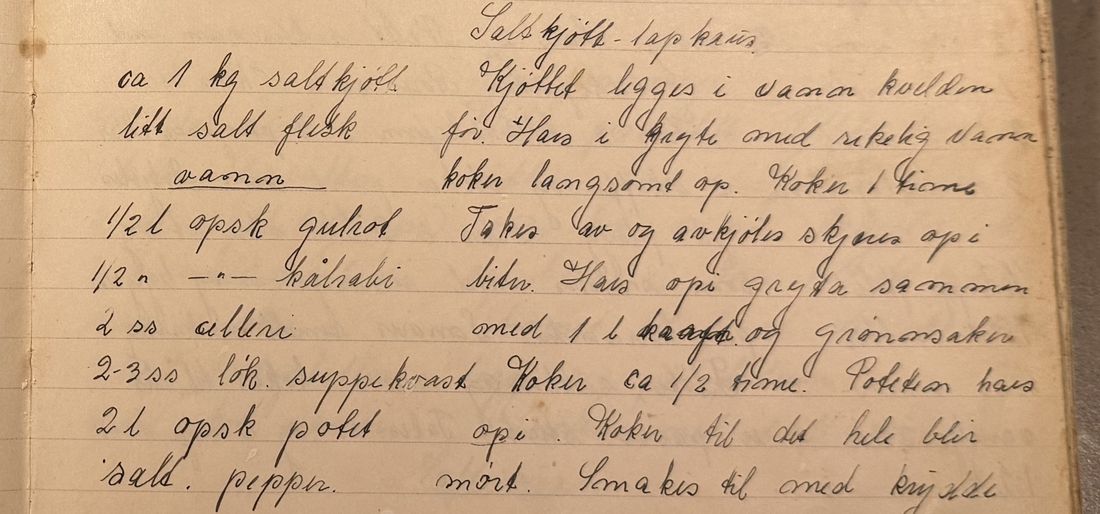 Saltkjøtt-lapskaus.
ca 1 kg saltkjøtt Kjøttet legges i vann kvelden
litt salt flesk før. Haes i gryte med rekelig vann
vann koker langsomt op. Koker 1 time
1/2 l opsk gulrot Takes av og avkjøles skjæres opi
1/2 " —"— kålrabi biter. Haes opi gryta sammen
2 ss celleri med 1 l kraft og grønnsaker
2-3 ss løk. suppekvast Koker ca 1/2 time. Poteten haes
2 l opsk potet opi. Koker til det hele blir
salt. pepper. mørt. Smakes til med krydde